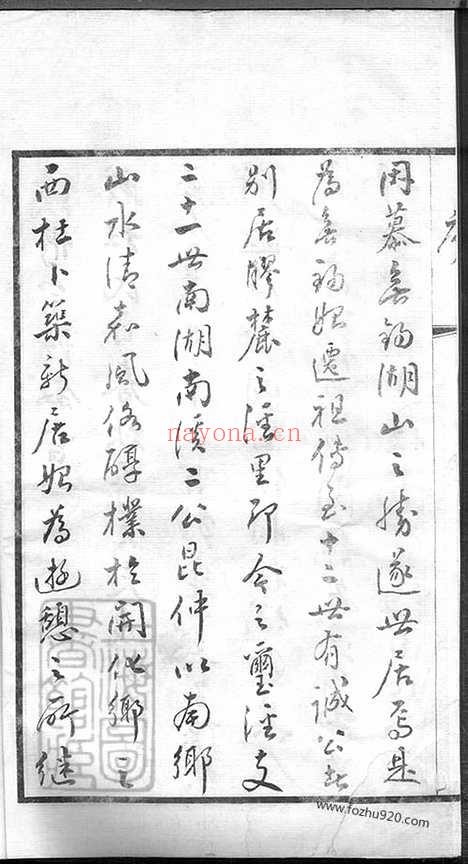 序
因慕無錫湖山之勝遂世居焉是
為無錫始遷祖傳至十二世有誠公者
別居膠麓之涇里即今之璽涇支
二十一世南湖南溪二公昆仲以南鄉
山水清嘉風俗醇樸於開化鄉之
西杜卜築新居始為遊憩之所繼
nayona.cn
www.fozhu920.com